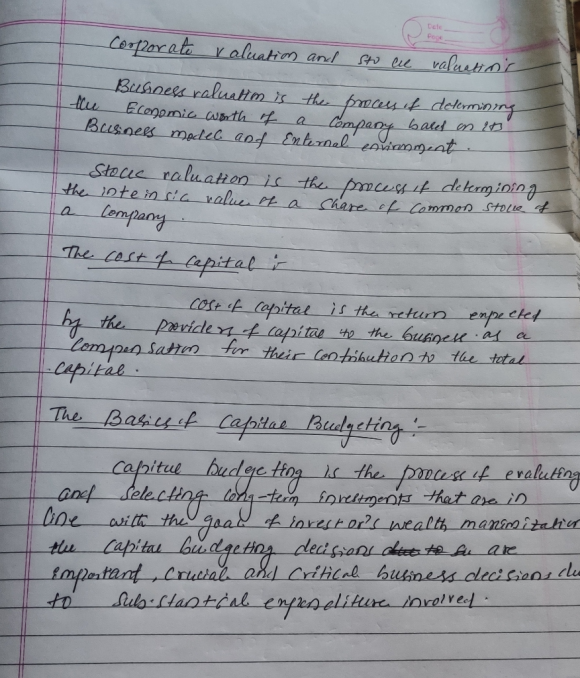 Date
Page
Corporate valuation and stock valuation's
Business valuation is the process of determining
the Economic worth of a company based on its
Business model and External environment.
Stock valuation is the process of determining
the inteinsic value of a share of common stock of
a company.
The cost of capital :-
cost of capital is the return expected
by the providers of capital to the business as a
compensation for their contribution to the total
capital.
The Basics of Capital Budgeting :-
capital budgeting is the process of evaluting
and selecting long-term investments that are in
line with the goal of investor's wealth maximization
the capital budgeting decisions due to su are
important, crucial and critical business decisions du
to substantial expenditure involved.